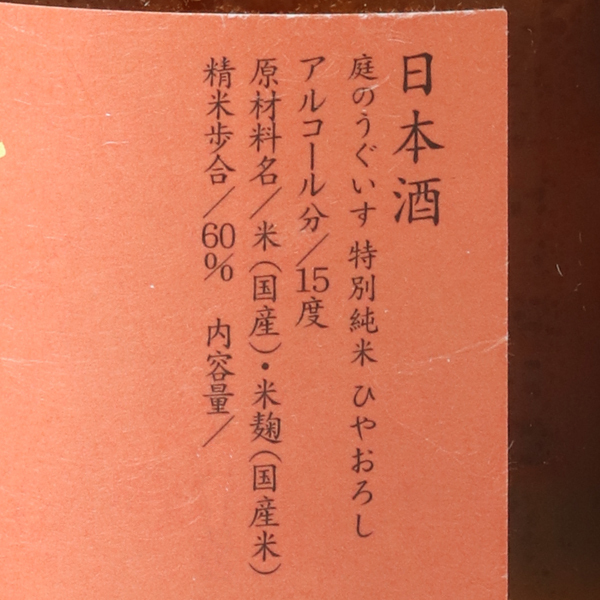 日本酒
庭のうぐいす 特別純米 ひやおろし
アルコール分/15度
原材料名/米(国産)・米麹(国産米)
精米歩合/60% 内容量/